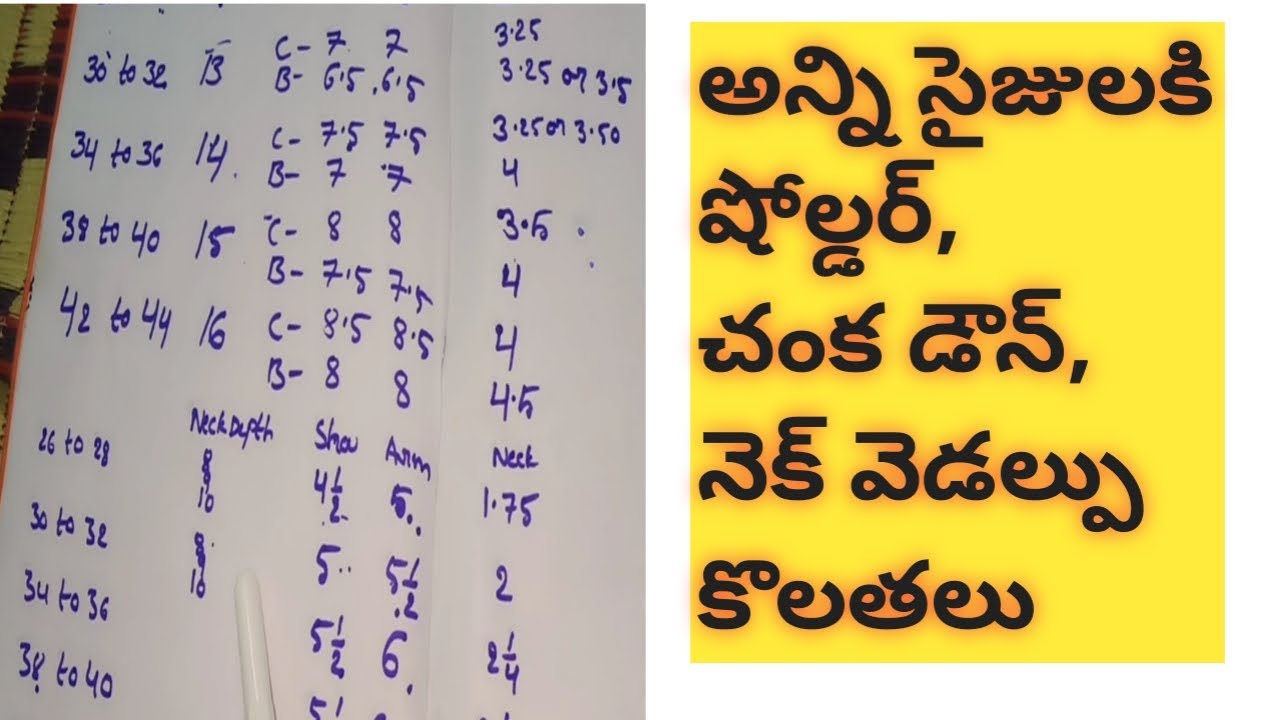 3.25
30 to 32 13 C- 7 7
B- 6.5 6.5 3.25 or 3.5
34 to 36 14 C- 7.5 7.5 3.25 or 3.50
B- 7 7 4
38 to 40 15 C- 8 8 3.5
B- 7.5 7.5 4
42 to 44 16 C- 8.5 8.5 4
B- 8 8 4.5
Neck Depth Shou Arm Neck
26 to 28 8 9 10 4 1/2 5 1.75
30 to 32 8 9 10 5 5 1/2 2
34 to 36 5 1/2 6 2 1/4
38 to 40
అన్ని సైజులకి
షోల్డర్,
చంక డౌన్,
నెక్ వెడల్పు
కొలతలు